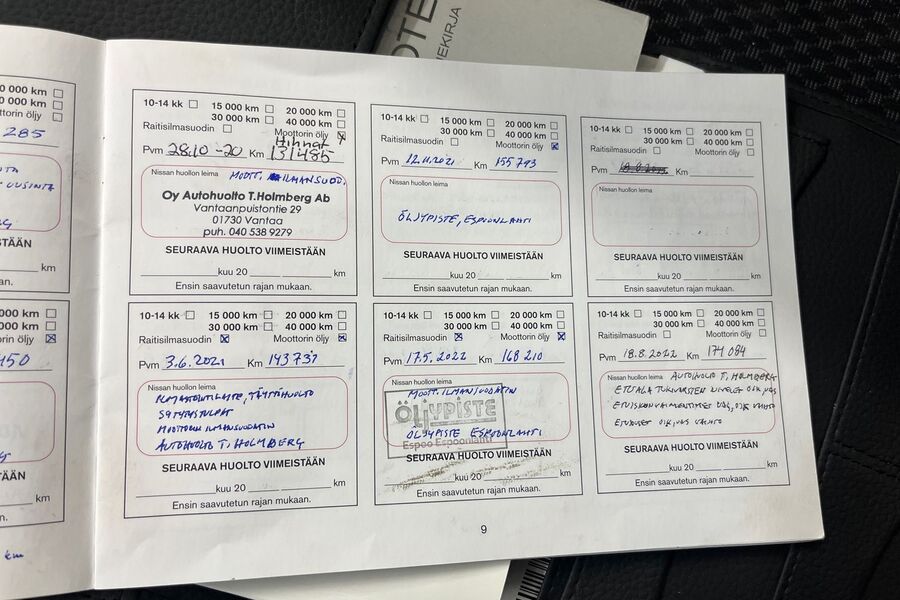 OTE
IEKIRJA
0 000 km
0 000 km
torin öljy
285
UUSINTA
ÄÄN
km
an.
000 km
000 km
torin öljy
450
ÄÄN
km
n.
km
10-14 kk 15 000 km 20 000 km
30 000 km 40 000 km
Raitisilmasuodin Moottorin öljy
Hihnat
Pvm 28.10 -20 Km 131485
Nissan huollon leima MOOTT. ILMANSUOD.
Oy Autohuolto T.Holmberg Ab
Vantaanpuistontie 29
01730 Vantaa
puh. 040 538 9279
SEURAAVA HUOLTO VIIMEISTÄÄN
kuu 20 km
Ensin saavutetun rajan mukaan.
10-14 kk 15 000 km 20 000 km
30 000 km 40 000 km
Raitisilmasuodin Moottorin öljy
Pvm 12.11.2021 Km 155793
Nissan huollon leima
ÖLJYPISTE, ESPOONLAHTI
SEURAAVA HUOLTO VIIMEISTÄÄN
kuu 20 km
Ensin saavutetun rajan mukaan.
10-14 kk 15 000 km 20 000 km
30 000 km 40 000 km
Raitisilmasuodin Moottorin öljy
Pvm Km
Nissan huollon leima
SEURAAVA HUOLTO VIIMEISTÄÄN
kuu 20 km
Ensin saavutetun rajan mukaan.
10-14 kk 15 000 km 20 000 km
30 000 km 40 000 km
Raitisilmasuodin Moottorin öljy
Pvm 3.6.2021 Km 143737
Nissan huollon leima
ILMASTOINTILAITE, TÄYTTÖHUOLTO
SYTYTYSTULPAT
MOOTTORIN ILMANSUODATIN
AUTOHUOLTO T. HOLMBERG
SEURAAVA HUOLTO VIIMEISTÄÄN
kuu 20 km
Ensin saavutetun rajan mukaan.
10-14 kk 15 000 km 20 000 km
30 000 km 40 000 km
Raitisilmasuodin Moottorin öljy
Pvm 17.5.2022 Km 168 210
Nissan huollon leima
MOOTT. ILMANSUODATIN
ÖLJYPISTE
ÖLJYPISTE ESPOONLAHTI
Espoo Espoonlahti
SEURAAVA HUOLTO VIIMEISTÄÄN
kuu 20 km
Ensin saavutetun rajan mukaan.
10-14 kk 15 000 km 20 000 km
30 000 km 40 000 km
Raitisilmasuodin Moottorin öljy
Pvm 18.8.2022 Km 174 084
Nissan huollon leima AUTOHUOLTO T, HOLMBERG
ETUALA TUKIVARSIEN OIK, VAS
ETUISKUNVAIMENTIMET VAS, OIK VAIHTO
ETUJOUSET OIK, VAS VAIHTO
SEURAAVA HUOLTO VIIMEISTÄÄN
kuu 20 km
Ensin saavutetun rajan mukaan.
9